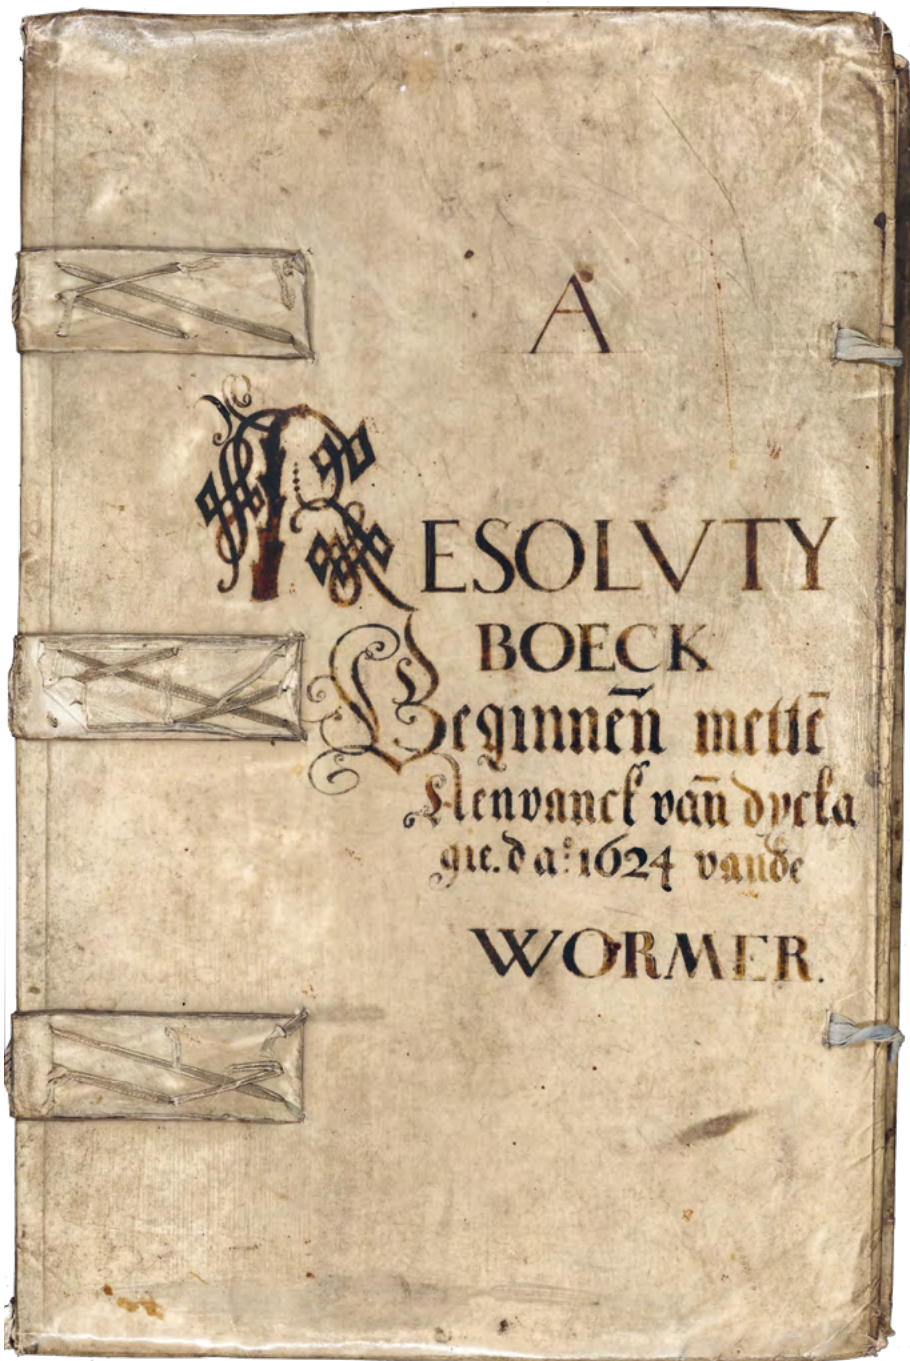 A
RESOLVTY
BOECK
Beginnen̄ mettē
Aenvanck van̄ dycka
gie. d a:º 1624 vande
WORMER.